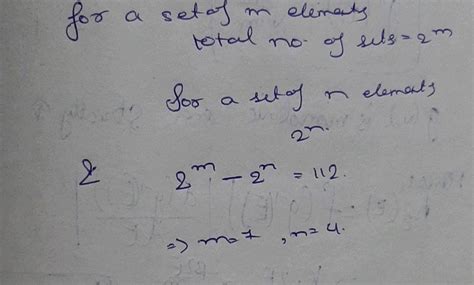 for a set of m elements
total no. of sets = 2^m
for a set of n elements
2^n.
&
2^m - 2^n = 112.
=> m=7, n=4.